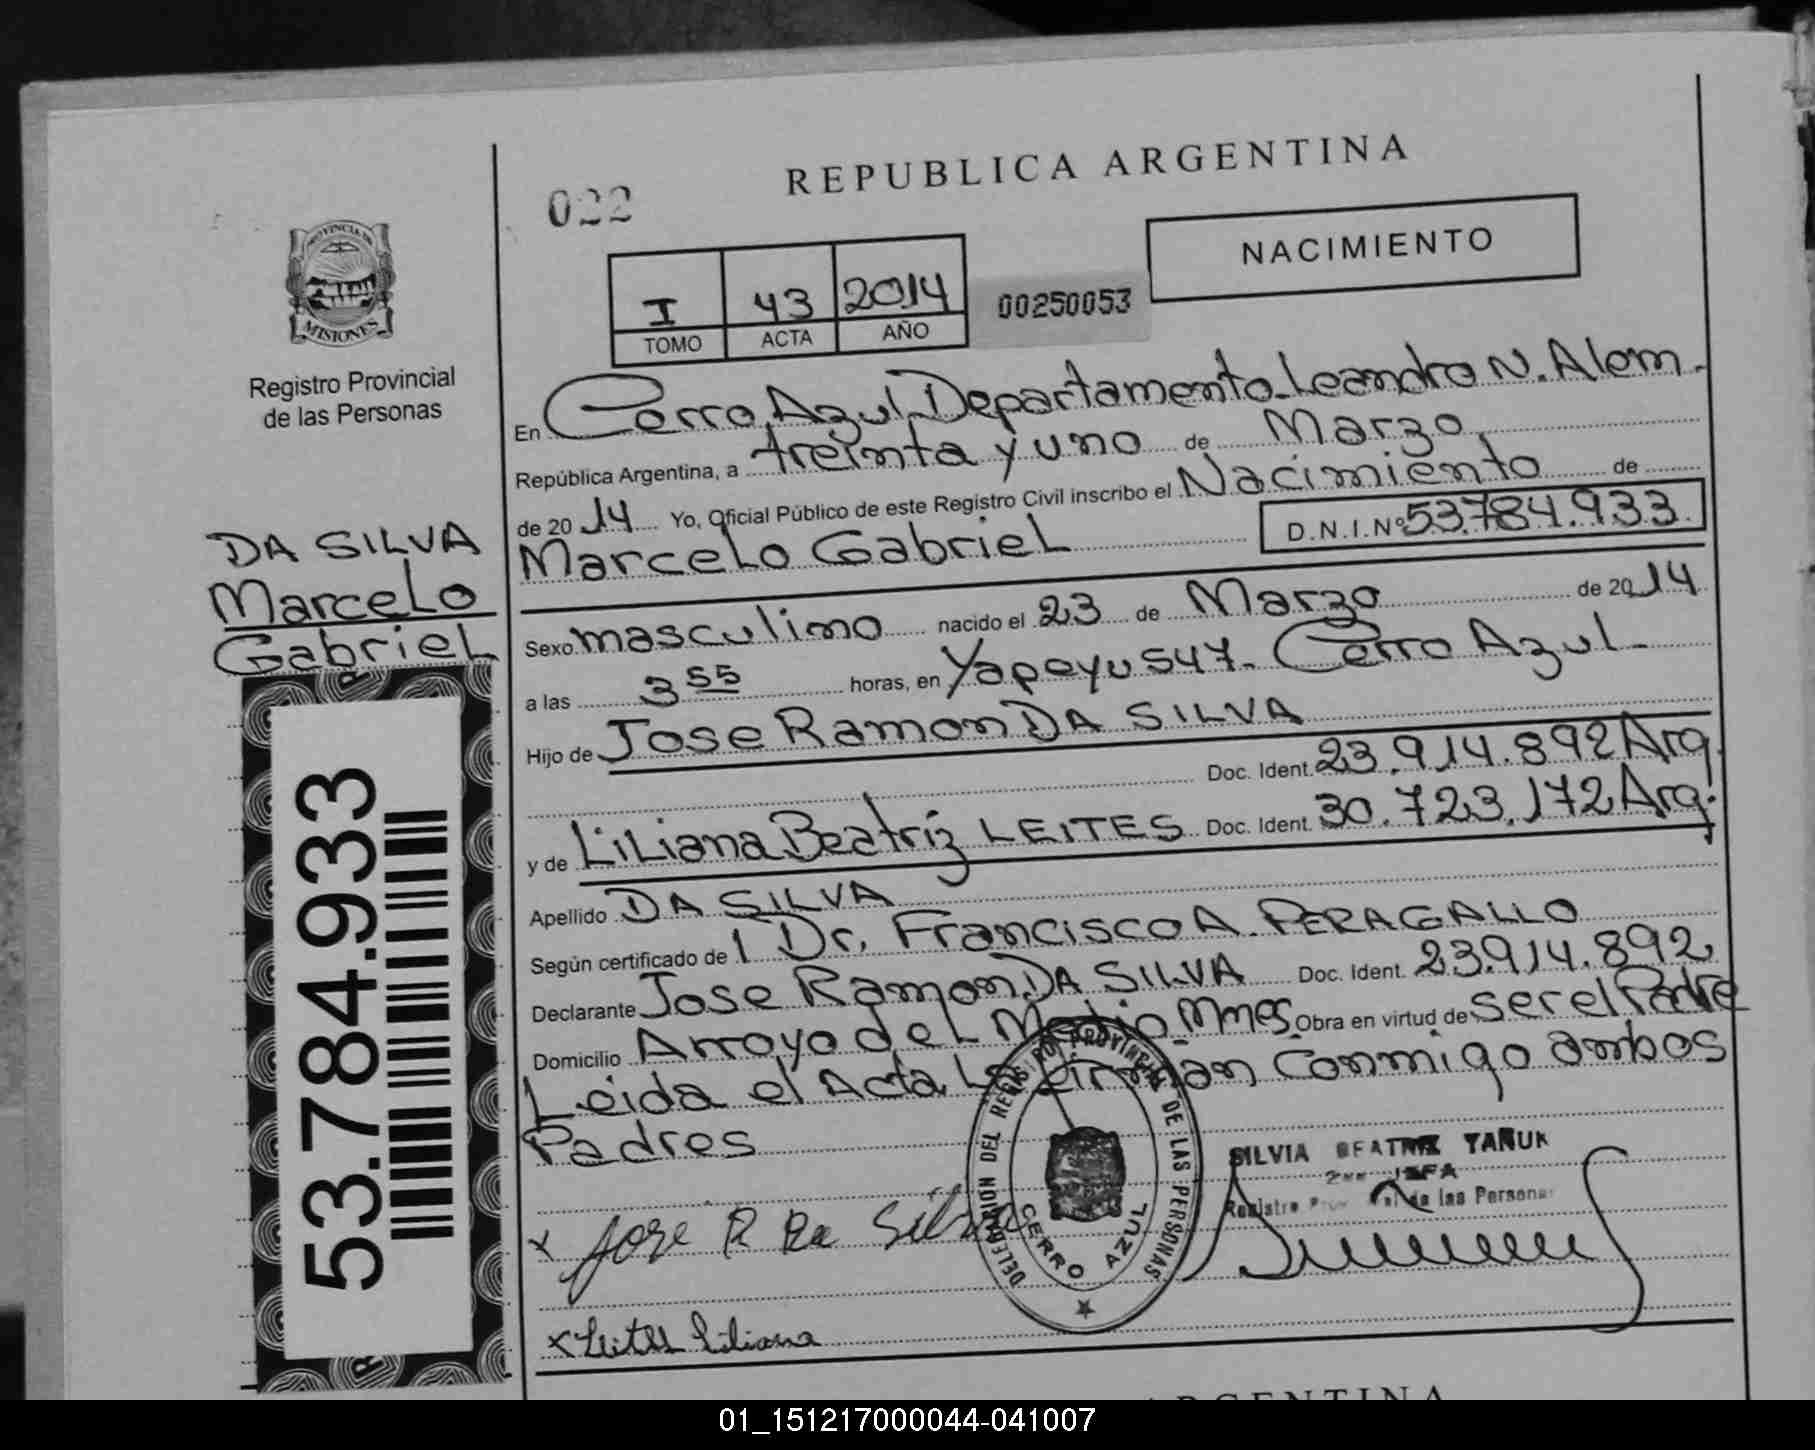 REPUBLICA ARGENTINA
022
NACIMIENTO
I 43 2014
TOMO ACTA AÑO
00250053
PROVINCIA DE
MISIONES
Registro Provincial
de las Personas
DA SILVA
Marcelo
Gabriel
53.784.933
En Cerro Azul Departamento Leandro N. Alem.
República Argentina, a treinta y uno de Marzo
de 20 14 Yo, Oficial Público de este Registro Civil inscribo el Nacimiento de
Marcelo Gabriel D.N.I.Nº 53.784.933
Sexo masculino nacido el 23 de Marzo de 2014
a las 3 55 horas, en Yapeyu 547- Cerro Azul-
Hijo de Jose Ramon DA SILVA
Doc. Ident. 23.914.892 Arg.
y de Liliana Beatriz LEITES Doc. Ident. 30.723.172 Arg.
Apellido DA SILVA
Según certificado de Dr. Francisco A. PERAGALLO
Declarante Jose Ramon DA SILVA Doc. Ident. 23.914.892
Domicilio Arroyo del Medio Mnes Obra en virtud de ser el Padre
Leida el Acta La Firman Conmigo ambos
Padres
DELEGACION DEL REGISTRO PROVINCIAL DE LAS PERSONAS
CERRO AZUL
SILVIA BEATRIZ YAÑUK
JEFA
Registro de las Personas
x Jose R Da Silva
x Leites Liliana
ARGENTINA
01_151217000044-041007